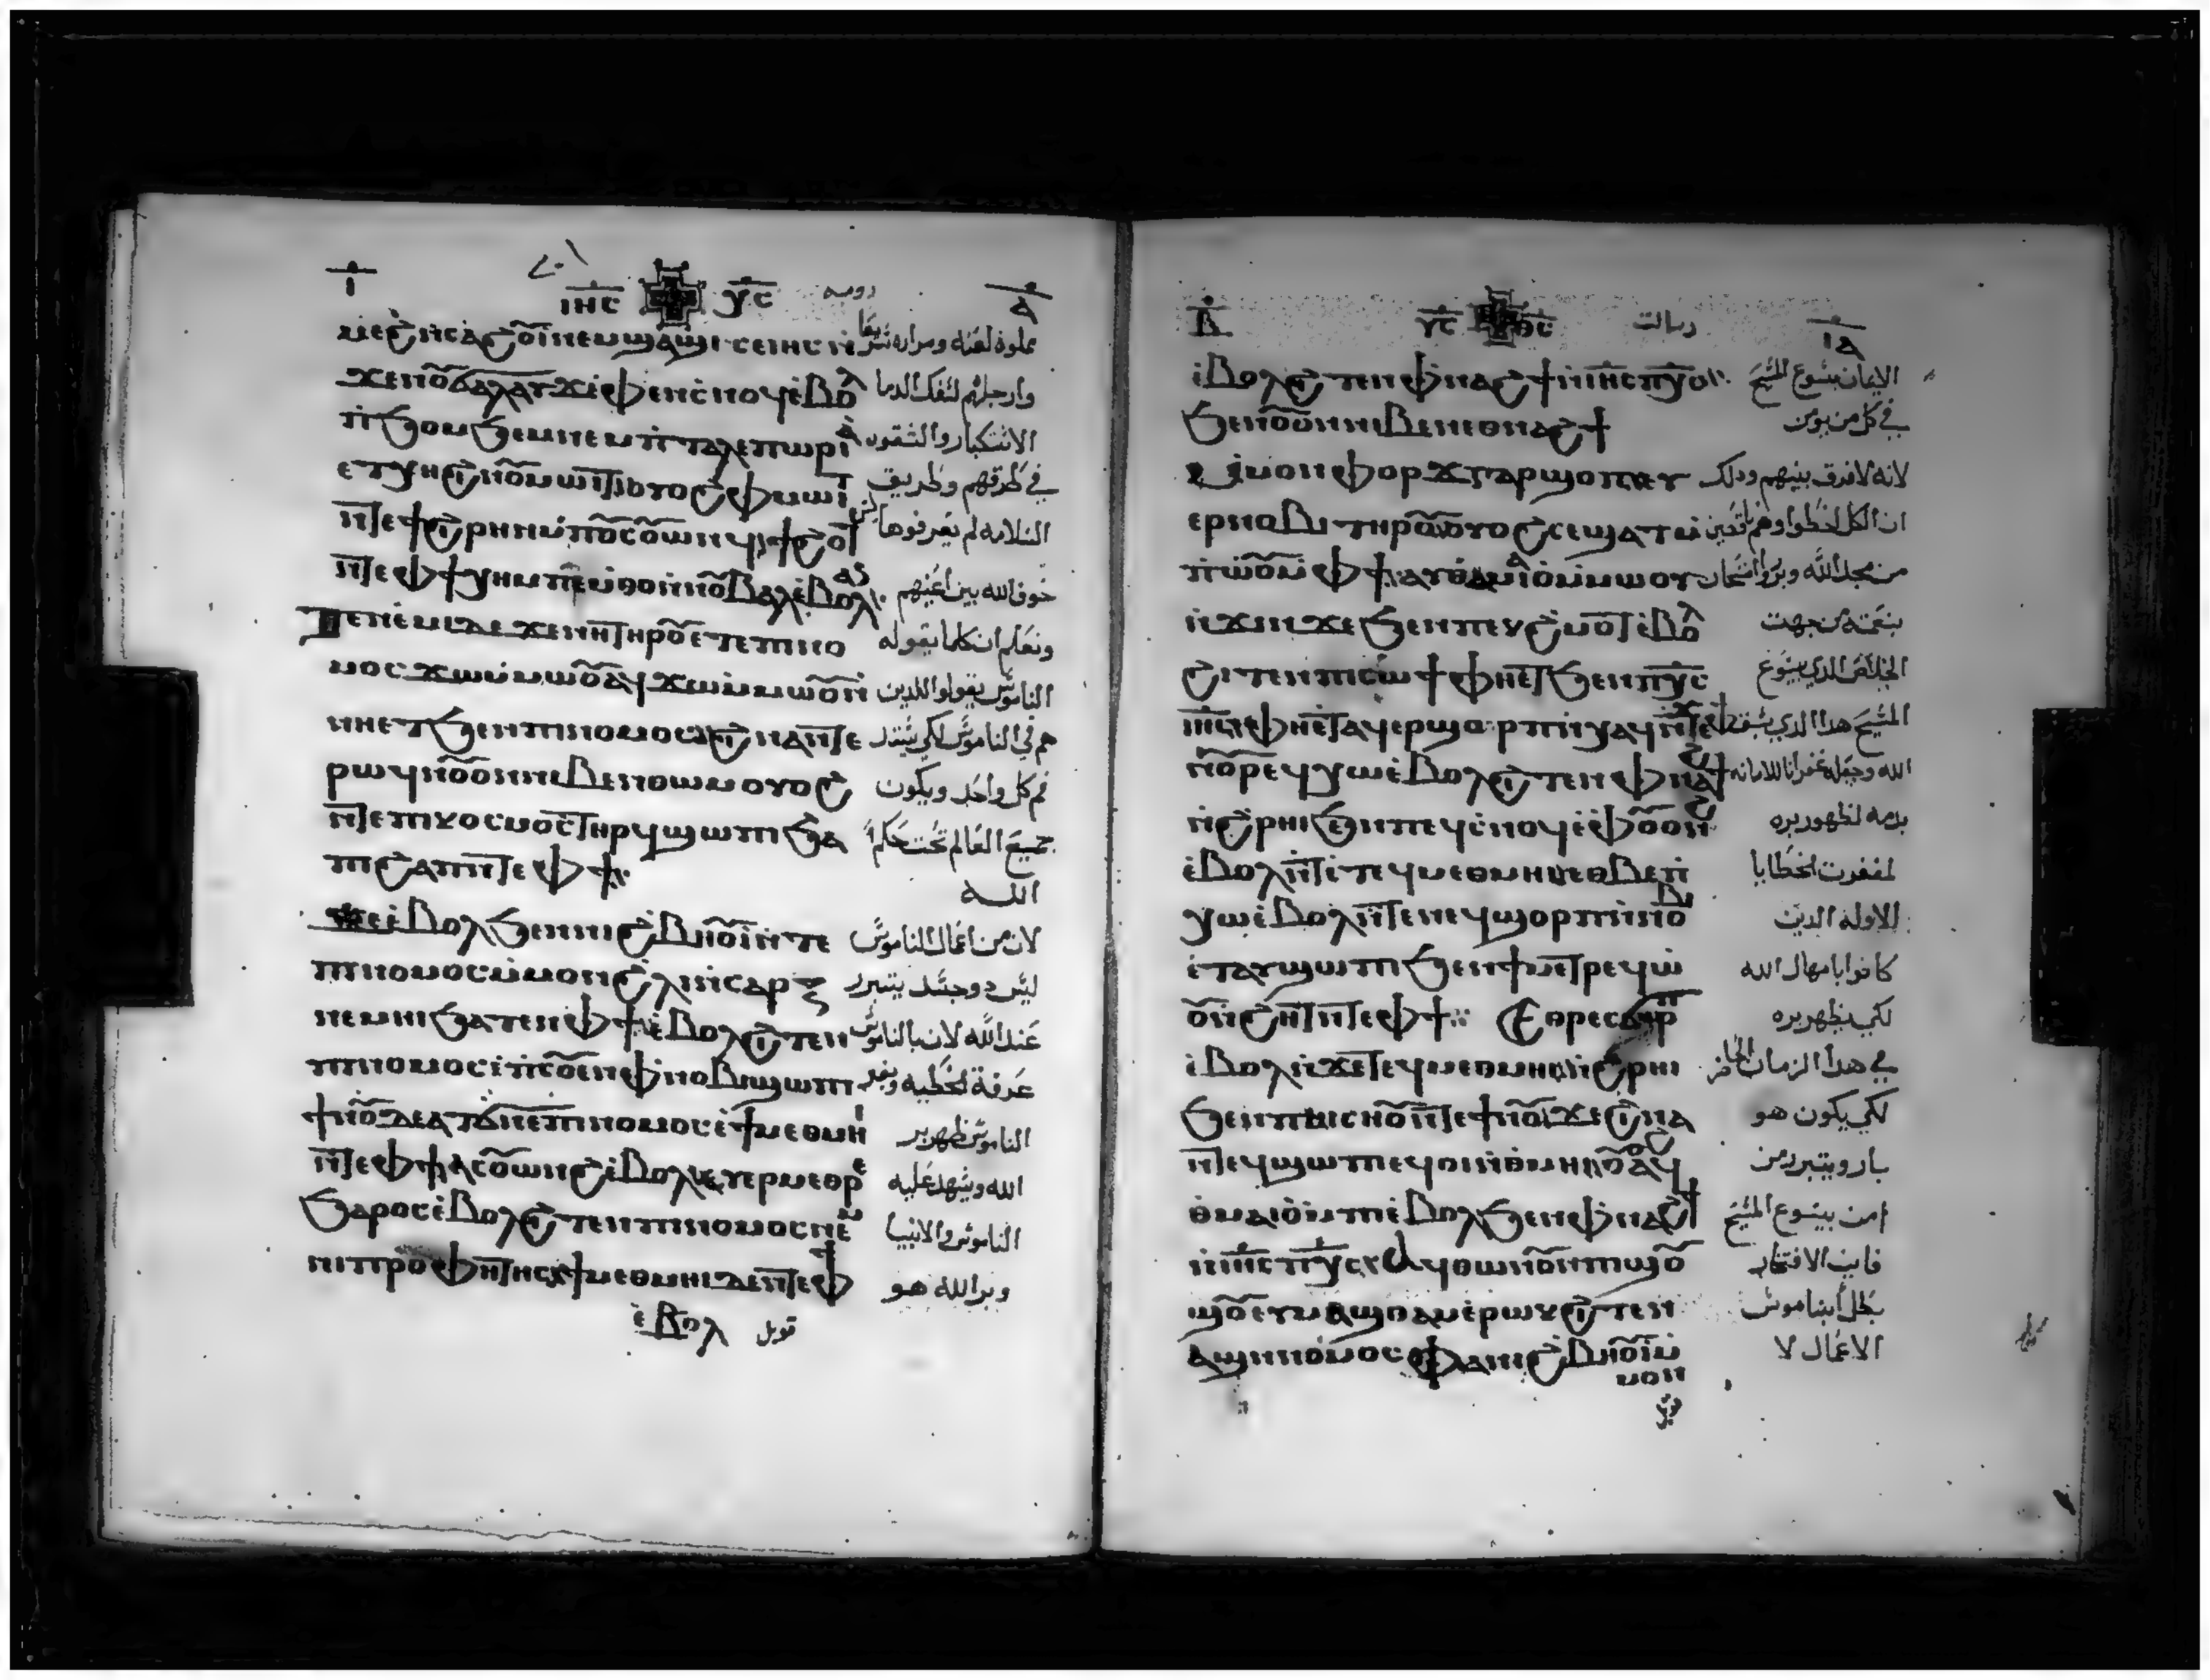 ⲓⲏⲥ ⲭⲥ رومية
ⲙⲉϩ ⲛⲥⲁϩⲟⲩⲓ ⲛⲉⲙ ϣⲁϣⲓ ⲥⲉⲓⲏⲥ ⲛ̀ مملوة لعنه ومراره
ϫⲉ ⲛⲟⲩϭⲁⲗⲁⲩϫ ⲉ̀ⲫⲉⲛ ⲥ̀ⲛⲟϥ ⲉ̀ⲃⲟⲗ وارجلهم لسفك الدما
ⲡ̀ϧⲟⲙϧⲉⲙ ⲛⲉⲙ ⲡ̀ⲧⲁⲗⲉⲡⲱⲣⲓⲁ̀ الانسكبار والشقوه
ⲉⲧⲭⲏ ϩⲓ ⲛⲟⲩⲙⲱⲓⲧ ⲟⲩⲟϩ ⲫⲙⲱⲓⲧ في طرقهم وطريق
ⲛ̀ⲧⲉ ϯϩⲓⲣⲏⲛⲏ ⲙ̀ⲡⲟⲩⲥⲟⲩⲱⲛⲥ ϯϩⲟϯ السلامه لم يعرفوها
ⲛ̀ⲧⲉ ⲫϯ ⲭⲏ ⲙⲡⲉⲙ̀ⲑⲟ ⲛ̀ⲛⲟⲩⲃⲁⲗ ⲉ̀ⲃⲟⲗ خوف الله بين اعينهم
ⲧⲉⲛⲉ̀ⲙⲓ ⲇⲉ ϫⲉ ⲛⲏ ⲧⲏⲣⲟⲩ ⲉⲧⲉ ⲡⲓⲛⲟ ونعلم ان كلما يقوله
ⲙⲟⲥ ϫⲱ ⲙ̀ⲙⲱⲟⲩ ⲁϥϫⲱ ⲙ̀ⲙⲱⲟⲩ ⲛ̀ الناموس يقولوا للدين
ⲛⲏ ⲉⲧϧⲉⲛ ⲡⲓⲛⲟⲙⲟⲥ ϩⲓⲛⲁ ⲛ̀ⲧⲉ هم في الناموس لكي يستد
ⲣⲱϥ ⲛⲟⲩⲟⲛ ⲛⲓⲃⲉⲛ ⲑⲱⲙ ⲟⲩⲟϩ فم كل واحد ويكون
ⲛ̀ⲧⲉ ⲡⲓⲕⲟⲥⲙⲟⲥ ⲧⲏⲣϥ ϣⲱⲡⲓ ϧⲁ جميع العالم تحت حكم
ⲡϩⲁⲡ ⲛ̀ⲧⲉ ⲫϯ الله
ϫⲉ ⲉ̀ⲃⲟⲗ ϧⲉⲛ ⲛⲓϩⲃⲏⲟⲩⲓ ⲛ̀ⲧⲉ لان من اعمال الناموس
ⲡⲓⲛⲟⲙⲟⲥ ⲙ̀ⲙⲟⲛ ϩⲗⲓ ⲛ̀ⲥⲁⲣⲝ ليس دو جسد يتبرر
ⲉ̀ⲃⲟⲗ ϩⲓⲧⲉⲛ عند الله لان بالناموس
ⲡⲓⲛⲟⲙⲟⲥ ⲉ̀ⲡⲥⲟⲩⲉⲛ ⲫⲛⲟⲃⲓ ϣⲱⲡⲓ عرفة الخطيه وبغير
ϯⲛⲟⲩ ⲇⲉ ⲁⲧϭⲛⲉ ⲡⲓⲛⲟⲙⲟⲥ ⲉ̀ϯⲙⲉⲑⲙⲏⲓ الناموس ظهر بر
ⲛ̀ⲧⲉ ⲫϯ ⲁⲥⲟⲩⲱⲛϩ ⲉ̀ⲃⲟⲗ ⲉⲩⲉⲣⲙⲉⲑⲣⲉ الله ويشهد عليه
ϧⲁⲣⲟⲥ ⲉ̀ⲃⲟⲗ ϩⲓⲧⲉⲛ ⲡⲓⲛⲟⲙⲟⲥ ⲛⲉⲙ الناموس والانبيا
ⲛⲓⲡⲣⲟⲫⲏⲧⲏⲥ ϯⲙⲉⲑⲙⲏⲓ ⲇⲉ ⲛ̀ⲧⲉ ⲫϯ وبر الله هو
ⲉ̀ⲃⲟⲗ قوبل
ⲩⲥ ⲑⲥ رسالت
ⲉ̀ⲃⲟⲗ ϩⲓⲧⲉⲛ ⲫⲛⲁϩϯ ⲛ̀ⲓⲏⲥ ⲡⲭⲥ الايمان بيسوع المسيح
ϧⲉⲛ ⲟⲩⲟⲛ ⲛⲓⲃⲉⲛ ⲉⲑⲛⲁϩϯ في كل من يومن
ⲙ̀ⲙⲟⲛ ⲫⲟⲣϫ ⲅⲁⲣ ϣⲟⲡ ⲁⲩ لانه لا فرق بينهم ودلك
ⲉⲣⲛⲟⲃⲓ ⲧⲏⲣⲟⲩ ⲟⲩⲟϩ ⲥⲉϣⲁⲧ ⲙ̀ ان الكل اخطوا وهم ناقصين
ⲡ̀ⲱⲟⲩ ⲙ̀ⲫϯ ⲉⲩⲑⲙⲁⲓⲟ ⲙ̀ⲙⲱⲟⲩ من مجد الله
ⲛ̀ϫⲓⲛϫⲏ ϧⲉⲛ ⲡⲉϥϩⲙⲟⲧ ⲉ̀ⲃⲟⲗ بنعمته من جهت
ϩⲓⲧⲉⲛ ⲡⲓⲥⲱϯ ⲫⲏⲉⲧ ϧⲉⲛ ⲡⲭⲥ الخلاص الدي بيسوع
ⲓⲏⲥ ⲫⲏⲉⲧⲁϥⲉⲣϣⲟⲣⲡ ⲛ̀ⲭⲁϥ المسيح هدا الدي
ⲛⲟⲩⲣⲉϥⲭⲱ ⲉ̀ⲃⲟⲗ ϩⲓⲧⲉⲛ ⲫⲛⲁϩϯ الله وجعله غفرانا للامانه
ⲛ̀ϩⲣⲏⲓ ϧⲉⲛ ⲡⲉϥⲥ̀ⲛⲟϥ ⲉ̀ⲫⲟⲩⲱⲛϩ بدمه لظهور بره
ⲉ̀ⲃⲟⲗ ⲛ̀ⲧⲉ ⲧⲉϥⲙⲉⲑⲙⲏⲓ ⲉⲑⲃⲉ ⲡ̀ لمغفرت الخطايا
ⲭⲱ ⲉ̀ⲃⲟⲗ ⲛ̀ⲧⲉ ⲛⲉϥϣⲟⲣⲡ ⲛ̀ⲛⲟⲃⲓ الاوله الدين
ⲉ̀ⲧⲁⲩϣⲱⲡⲓ ϧⲉⲛ ϯⲙⲉⲧⲣⲉϥⲱ̀ كانوا بامهال الله
ⲟⲩⲛ̀ϩⲏⲧ ⲛ̀ⲧⲉ ⲫϯ لكي يظهر بره
ⲉ̀ⲃⲟⲗ ⲛ̀ϫⲉ ⲧⲉϥⲙⲉⲑⲙⲏⲓ ⲛ̀ϩⲣⲏⲓ في هدا الزمان الحاضر
ϧⲉⲛ ⲡⲓⲥⲏⲟⲩ ⲛ̀ⲧⲉ ϯⲛⲟⲩ ϫⲉ ϩⲓⲛⲁ لكي يكون هو
ⲛ̀ⲧⲉϥϣⲱⲡⲓ ⲉϥⲟⲓ ⲛ̀ⲑⲙⲏⲓ ⲟⲩⲟϩ ⲁϥ بار ويتبرر من
ⲑⲙⲁⲓⲟ ⲙ̀ⲡⲓⲉ̀ⲃⲟⲗ ϧⲉⲛ ⲫⲛⲁϩϯ امن بيسوع المسيح
ⲛ̀ⲓⲏⲥ ⲡⲭⲥ ⲁϥⲑⲱⲛ ⲟⲩⲛ ⲡⲓϣⲟⲩ فاين الافتخار
ϣⲟⲩ ⲁⲩⲙⲁϣⲑⲁⲙ ⲉ̀ⲣⲱϥ ϩⲓⲧⲉⲛ بطل ابناموس
ⲁϣ ⲛ̀ⲛⲟⲙⲟⲥ ⲫⲁ ⲛⲓϩⲃⲏⲟⲩⲓ ⲙ̀ الاعمال لا
ⲙⲟⲛ